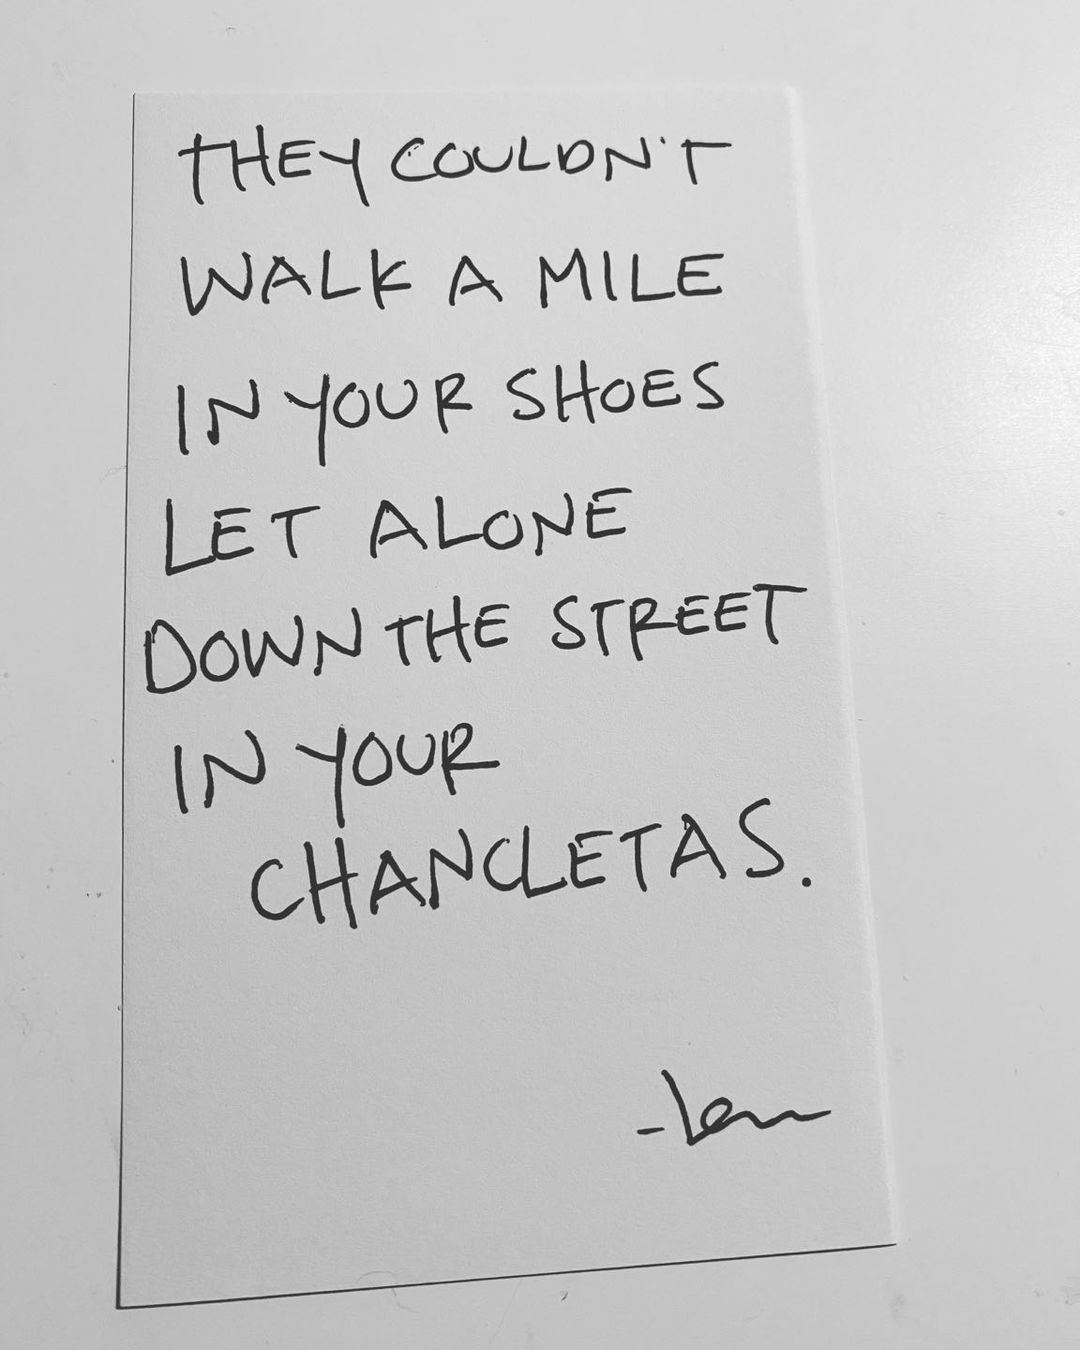 THEY COULDN'T
WALK A MILE
IN YOUR SHOES
LET ALONE
DOWN THE STREET
IN YOUR
CHANCLETAS.